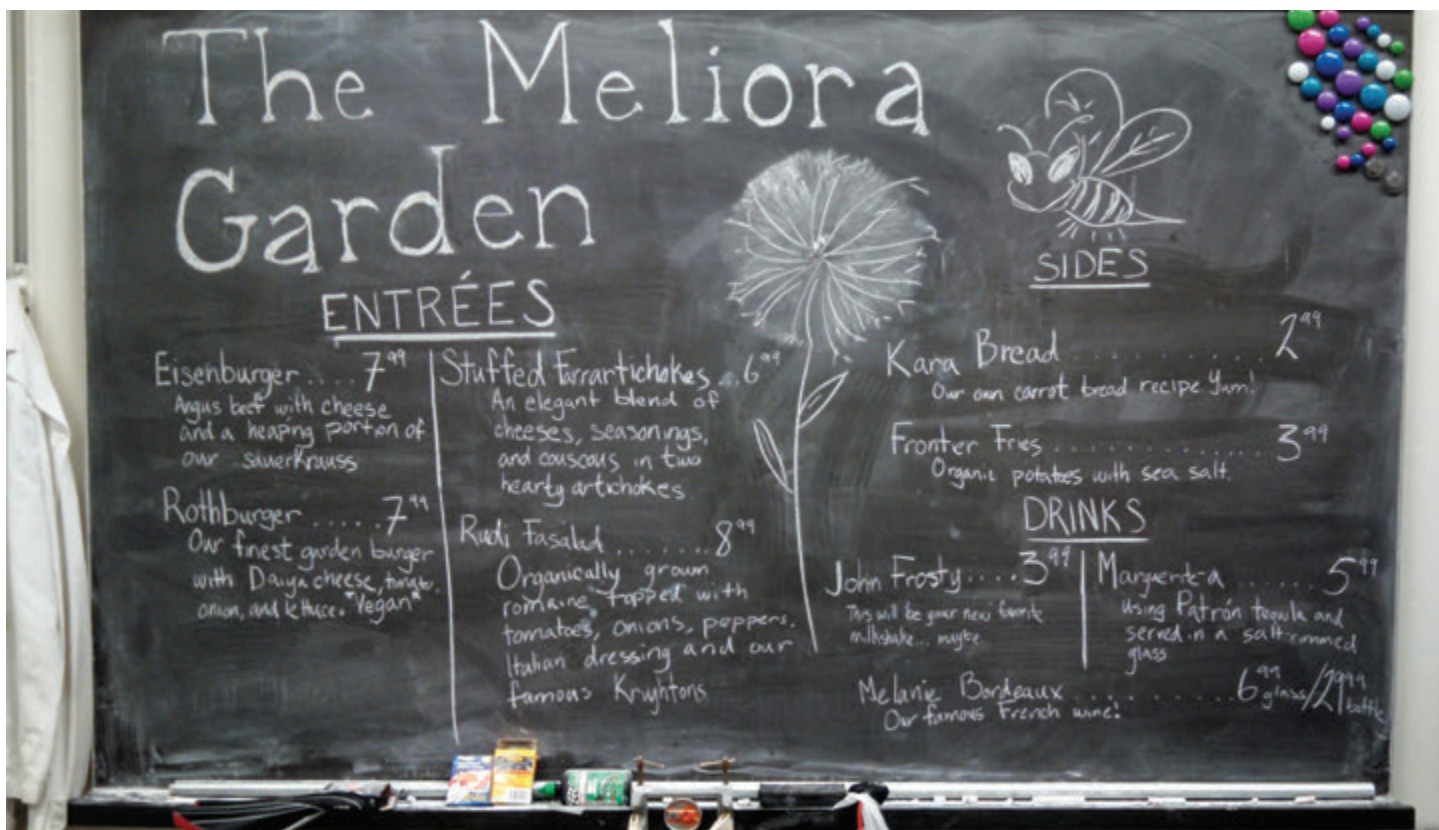 The Meliora
Garden
ENTRÉES
Eisenburger .... 7.99
Angus beef with cheese
and a heaping portion of
our sauerKrauss
Rothburger ..... 7.99
Our finest garden burger
with Daiya cheese, tomato,
onion, and lettuce. "Vegan"
Stuffed Farrartichokes ... 6.99
An elegant blend of
cheeses, seasonings,
and couscous in two
hearty artichokes
Rudi Fasalad ....... 8.99
Organically grown
romaine topped with
tomatoes, onions, peppers,
Italian dressing and our
famous Kruyhtons
SIDES
Kara Bread .......... 2.99
Our own carrot bread recipe Yum!
Fronter Fries .......... 3.99
Organic potatoes with sea salt.
DRINKS
John Frosty .... 3.99
This will be your new favorite
milkshake... maybe
Marguerit-a ...... 5.99
using Patrón tequila and
served in a salt-rimmed
glass
Melanie Bordeaux ......... 6.99 glass/29.99 bottle
Our famous French wine!